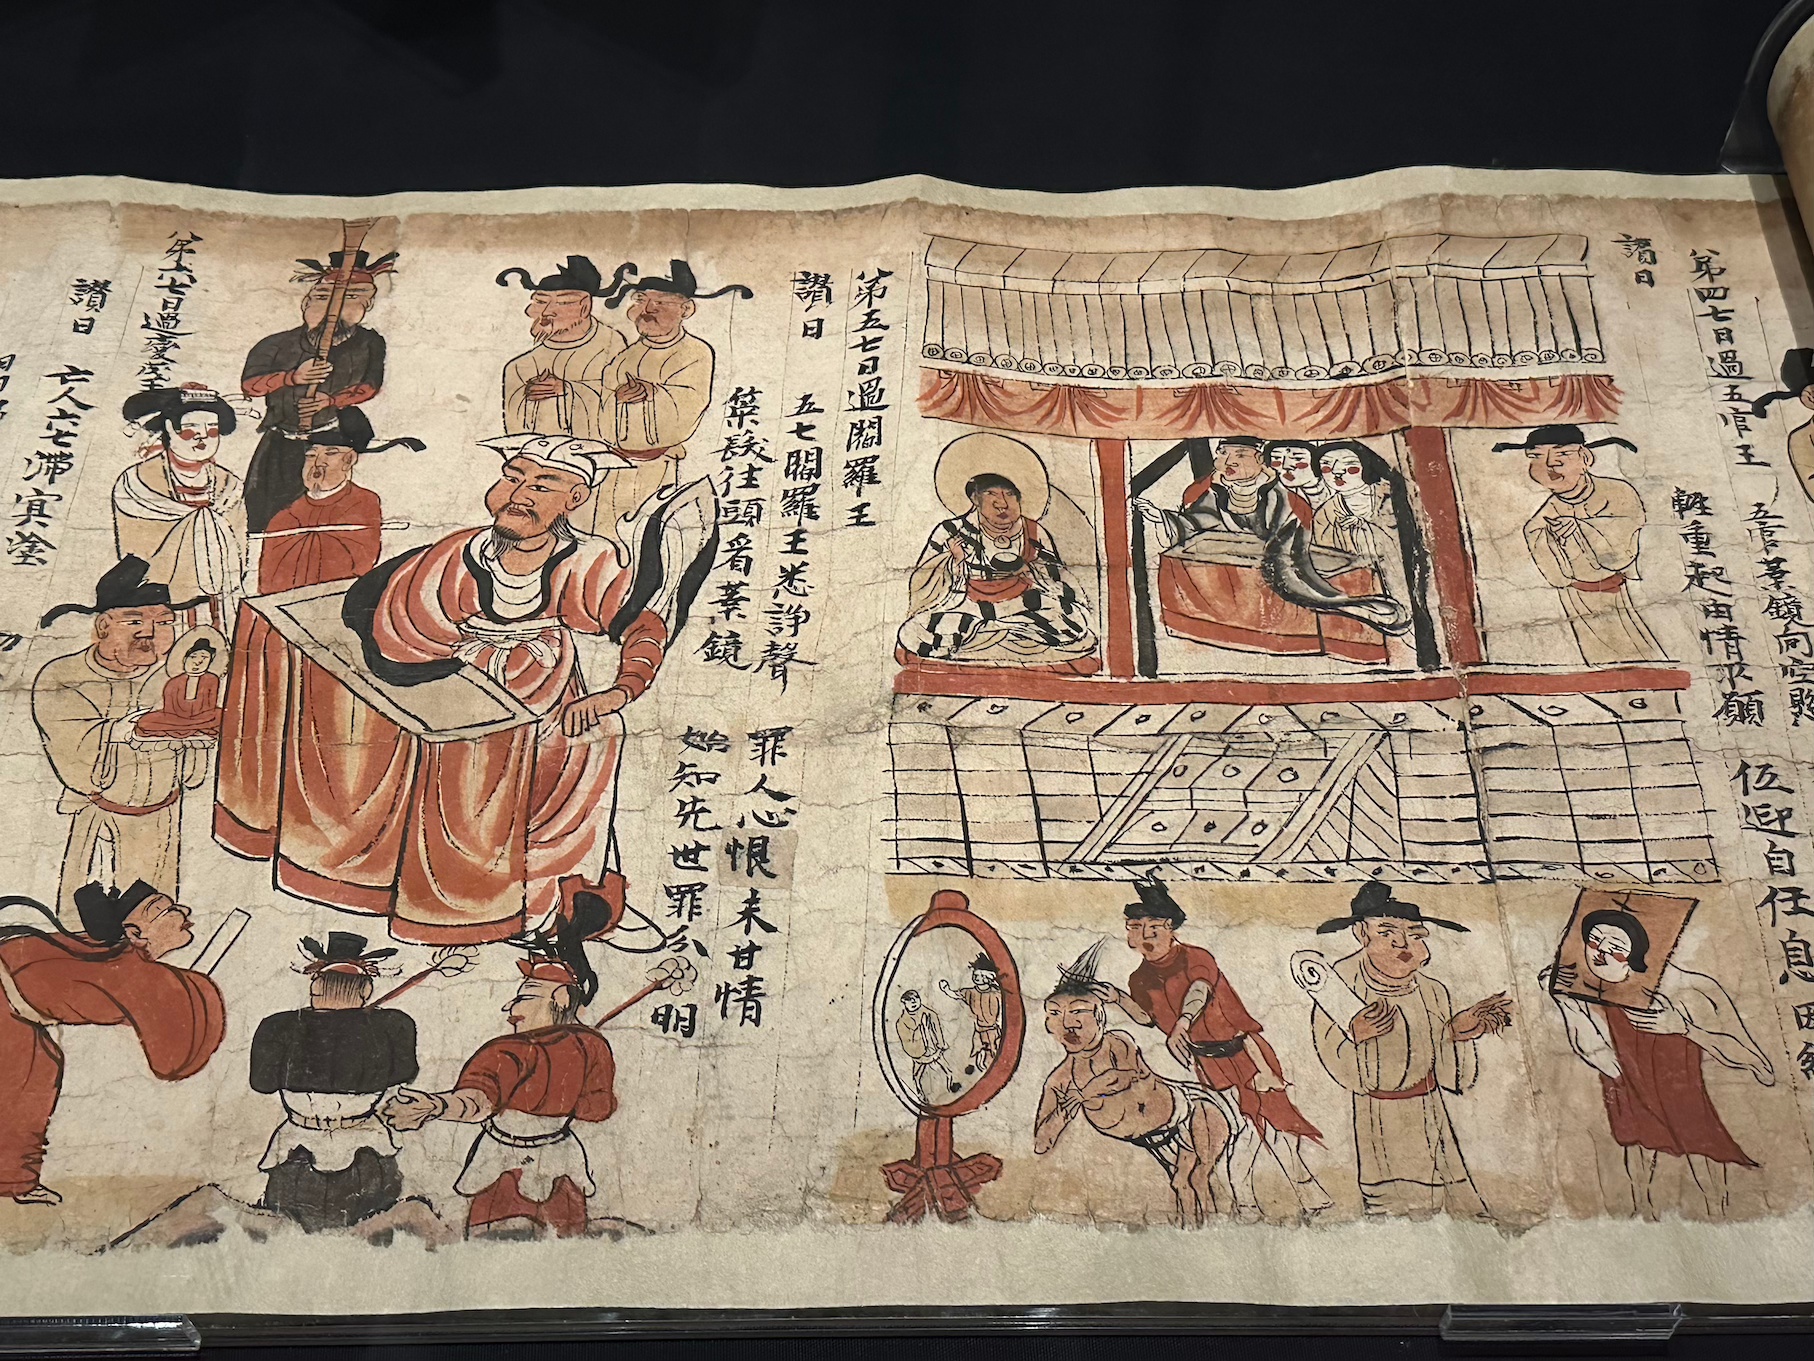 第四七日過五官王
讃曰
五官業鏡向空
輕重起由情求願
伍迎自任息因緣
第五七日過閻羅王
讃曰
五七閻羅王悉諍聲
罪人心恨未甘情
策髮往頭看業鏡
始知先世罪分明
第六七日過變成王
讃曰
亡人六七滯冥塗